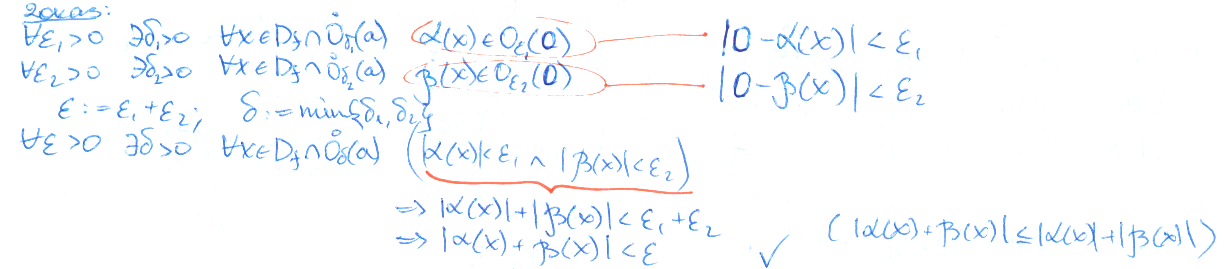 Доказ:
∀ε₁>0 ∃δ₁>0 ∀x∈D_f∩O̊_δ₁(a) α(x)∈O_ε₁(0) |0-α(x)|<ε₁
∀ε₂>0 ∃δ₂>0 ∀x∈D_f∩O̊_δ₂(a) β(x)∈O_ε₂(0) |0-β(x)|<ε₂
ε:=ε₁+ε₂; δ:=min{δ₁,δ₂}
∀ε>0 ∃δ>0 ∀x∈D_f∩O̊_δ(a) (|α(x)|<ε₁ ∧ |β(x)|<ε₂)
⇒ |α(x)|+|β(x)|<ε₁+ε₂
⇒ |α(x)+β(x)|<ε ✓ (|α(x)+β(x)|≤|α(x)|+|β(x)|)